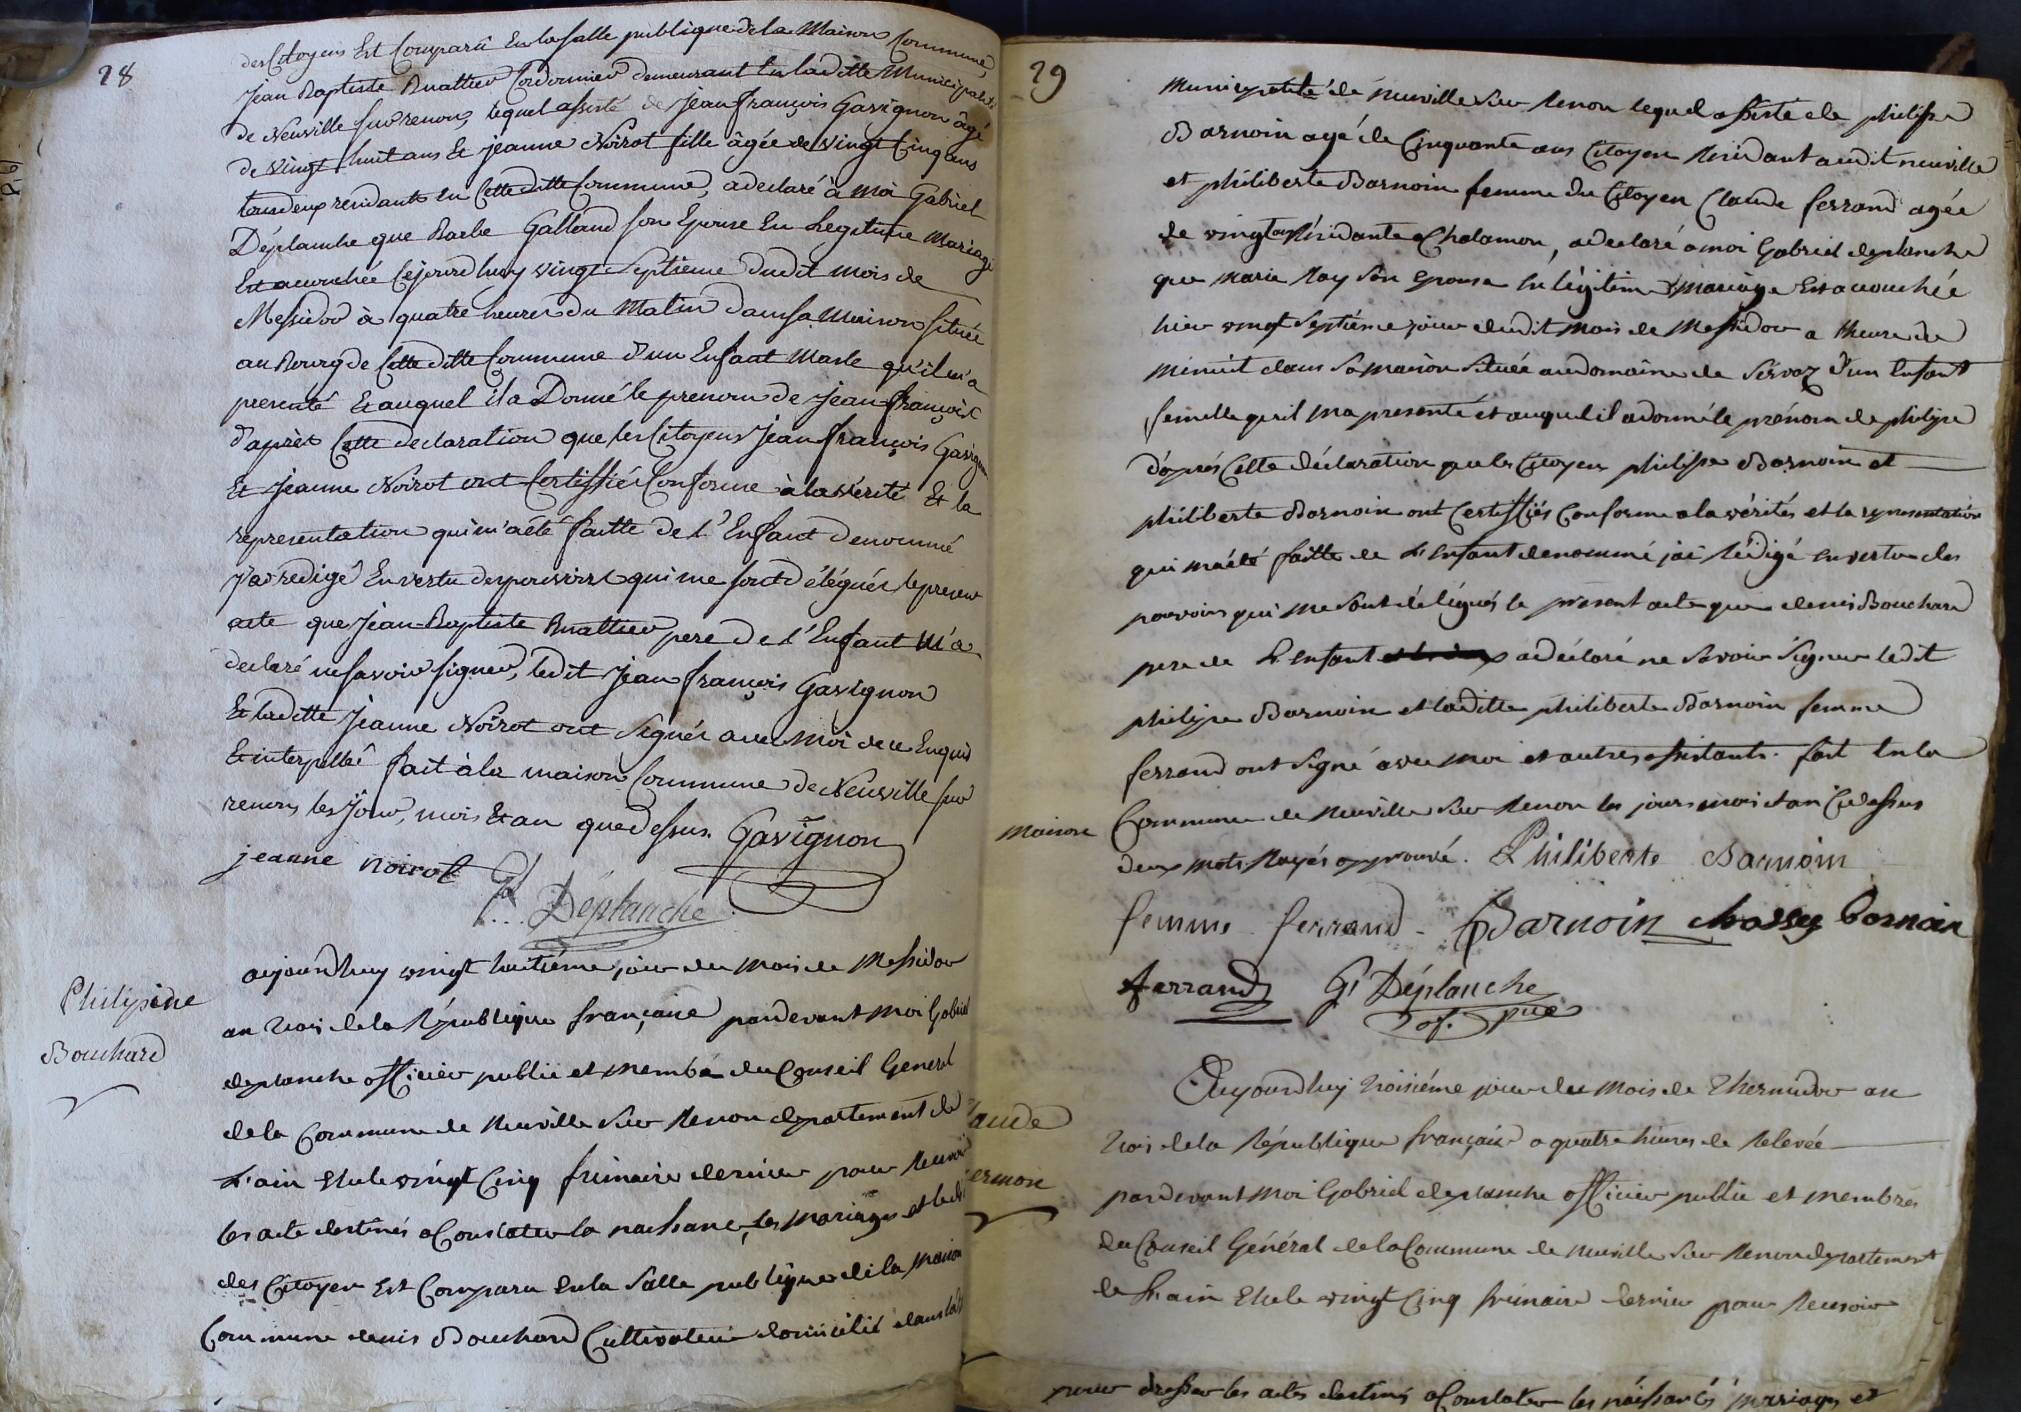 28
des Citoyens Est Comparû En la salle publique de la Maison Commune,
Jean Baptiste Ruattier Cordonnier demeurant En laditte Municipalité
de Neuville sur renons, lequel assisté de Jean françois Gavignon âgé
de vingt huit ans Et jeanne Noirot fille âgée de vingt Cinq ans
tous deux residants en Cette ditte Commune, a declaré à moi Gabriel
Déplanche que Barbe Galland son Epouse En Legitime Mariage
Est accouchée Cejourd'huy vingt Septieme dudit mois de
Messidor à quatre heures du Matin dans sa Maison située
au Bourg de Cette ditte Commune d'un Enfant Masle qu'il m'a
presenté Et auquel il a Donné le prenom de Jean françois
d'après Cette declaration que les Citoyens Jean françois Gavignon
Et Jeanne Noirot ont Certiffiée Conforme à la vérité Et la
representation qui m'a été faitte de l'Enfant denommé
j'ai redigé En vertu des pouvoirs qui me sont délégués le present
acte que Jean-Baptiste Ruattier pere de l'Enfant m'a
declaré ne savoir signer, ledit Jean françois Gavignon
Et laditte Jeanne Noirot ont signés avec moi de ce Enquis
Et interpellé fait à la maison Commune de Neuville sur
renons les Jour, mois Et an que dessus. Gavignon
jeanne noirot
Gel Déplanche
Philipine
Bouchard
aujourdhuy vingt huitiéme jour du mois de Messidor
an trois de la République française pardevant moi Gabriel
deplanche officier public et membre du Conseil General
de la Commune de Neuville sur Renon departement de
L'ain Elu le vingt Cinq frimaire dernier pour Recevoir
les acte destinés a Constater la naissance, les mariages et le
des Citoyen Est Comparu En la Salle publique de la Maison
Commune denis Bouchard Cultivateur domicilié dans la
29
Municipalité de Neuville sur Renon lequel assisté de philippe
Barnoin agé de Cinquante ans Citoyen Résidant audit neuville
et philiberte Barnoin femme du Citoyen Claude ferrand agée
de vingt ans Résidante a Chalamon, a declaré a moi Gabriel deplanche
que marie Ray son Epouse En légitime mariage Est accouchée
hier vingt Septiéme jour dudit mois de Messidor a lheure de
minuit dans sa maison située au domaine de Sérvoz d'un Enfant
femelle qu'il ma presenté et auquel il a donné le prénom de philipe
d'aprés Cette déclaration que les Citoyens philippe Barnoin et
philiberte Barnoin ont Certiffiés Conforme a la vérités et la representation
qui m'a été faitte de L'Enfant denommé jai Rédigé en vertu des
pouvoirs qui me sont délégués le présent acte que denis Bouchard
pere de L'Enfant a déclaré ne savoir signer ledit
philippe Barnoin et laditte philiberte Barnoin femme
ferrand ont signé avec moi et autres assistants. fait En la
maison Commune de Neuville sur Renon les jours mois et an Cidessus
deux mots Rayés approuvé. Philiberte Barnoin
femme ferrand. Barnoin Barnoin
ferrand Gl Déplanche
of. pue
aude
ermon
Aujourdhuy troisiéme jour du mois de Thermidor an
trois de la République française a quatre heures de Relevée
pardevant moi Gabriel deplanche officier public et membres
du Conseil Général de la Commune de neuville sur Renon departement
de L'ain Elu le vingt Cinq frimaire dernier pour Recevoir
pour dresser les actes destinés a Constater les naissances mariages et